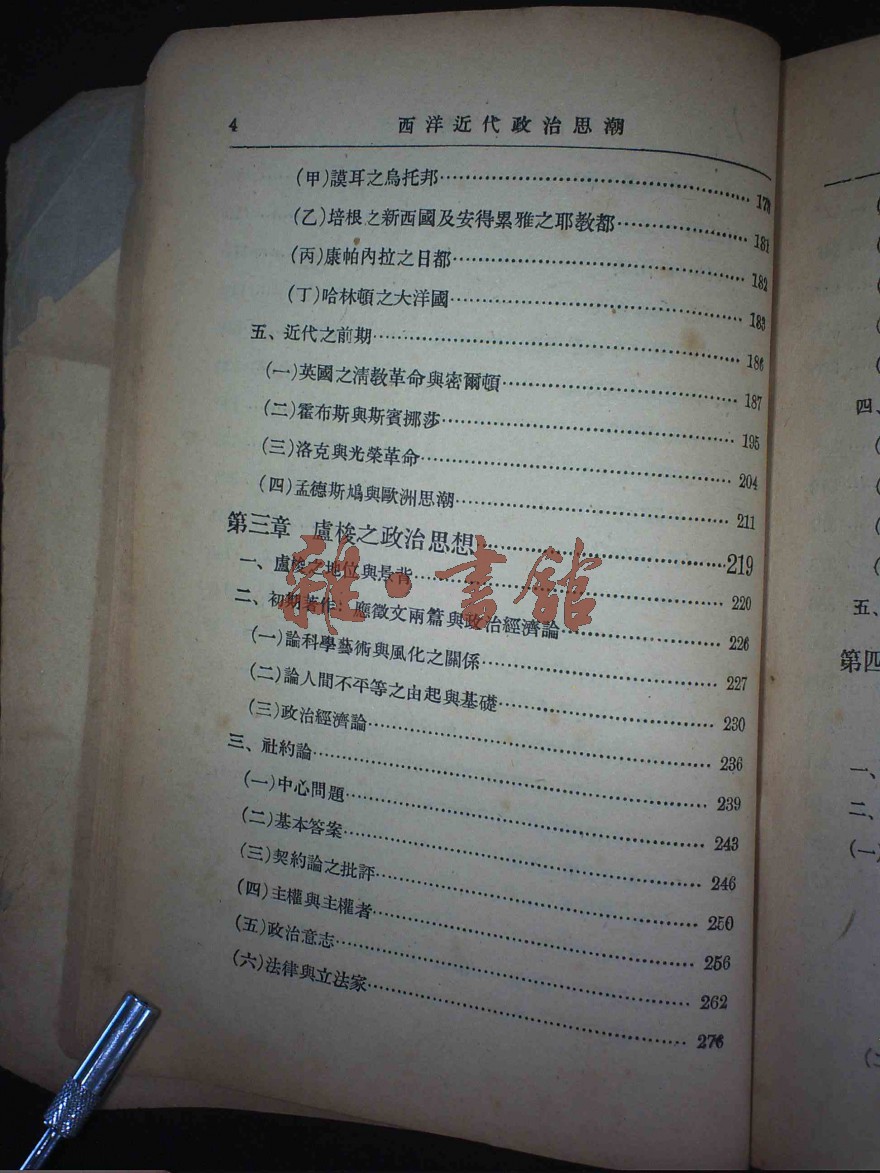 4 西洋近代政治思潮
(甲)謨耳之烏托邦
(乙)培根之新西國及安得累雅之耶教都 181
(丙)康帕內拉之日都 182
(丁)哈林頓之大洋國 183
五、近代之前期 186
(一)英國之淸敎革命與密爾頓 187
(二)霍布斯與斯賓挪莎 195
(三)洛克與光榮革命 204
(四)孟德斯鳩與歐洲思潮 211
第三章 盧梭之政治思想 219
一、盧梭之地位與景背 220
二、初期著作：應徵文兩篇與政治經濟論 226
(一)論科學藝術與風化之關係 227
(二)論人間不平等之由起與基礎 230
(三)政治經濟論 236
三、社約論 239
(一)中心問題 243
(二)基本答案 246
(三)契約論之批評 250
(四)主權與主權者 256
(五)政治意志 262
(六)法律與立法家 276
雜·書館
四、
五、
第四
一、
二、